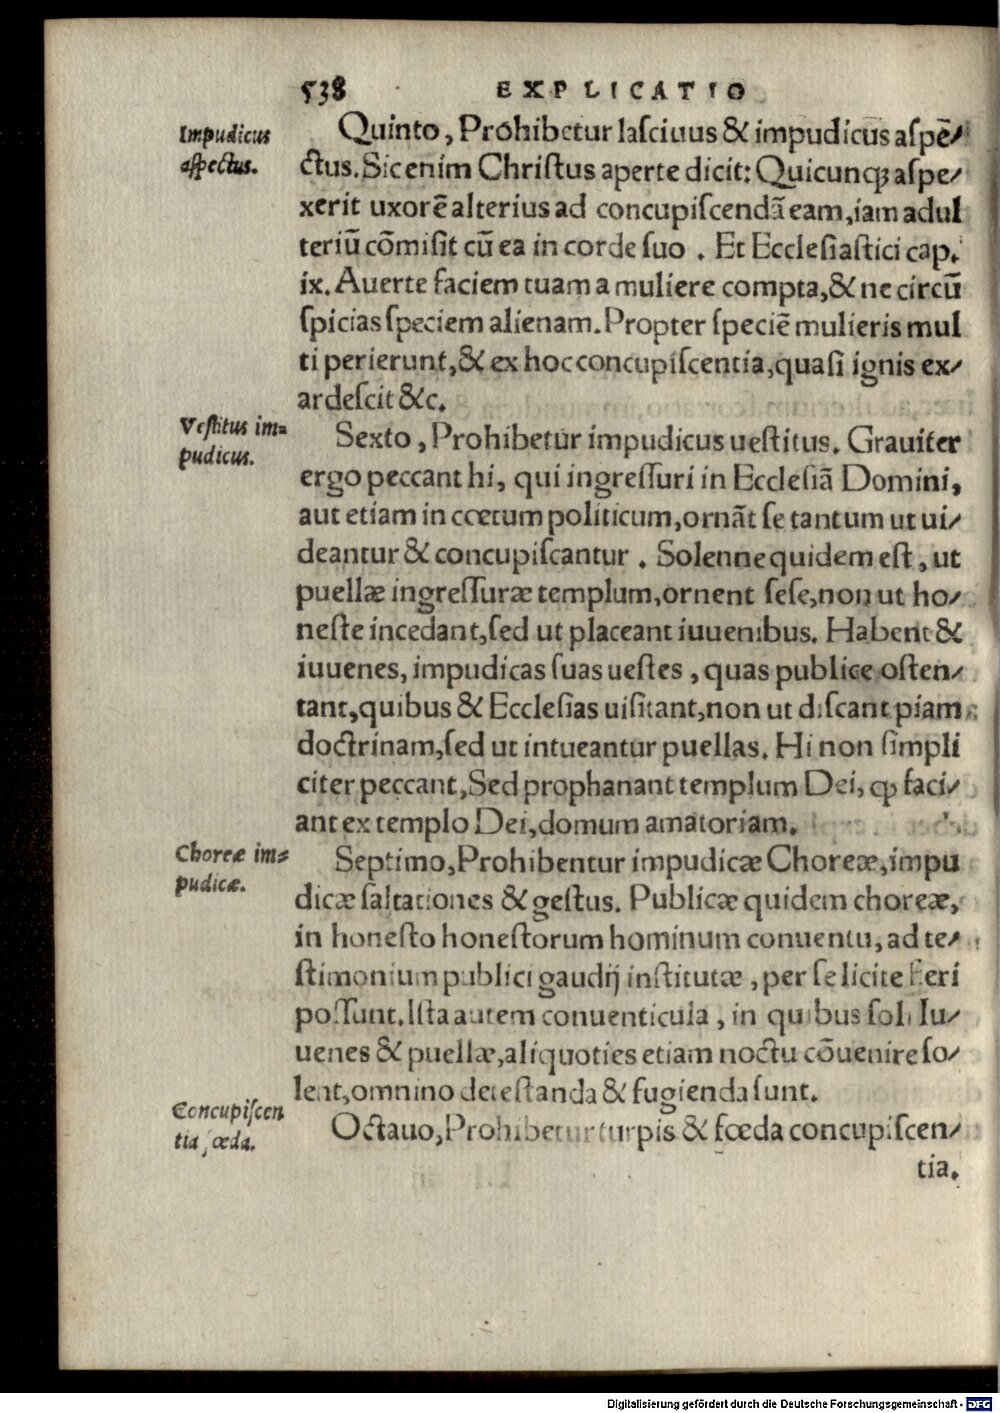 538 EXPLICATIO
Impudicus
aſpectus.
Quinto, Prohibetur laſciuus & impudicus aſpē/
ctus. Sic enim Chriſtus aperte dicit: Quicunqꝫ aſpe/
xerit uxorē alterius ad concupiſcendā eam, iam adul
teriū cōmiſit cū ea in corde ſuo. Et Eccleſiaſtici cap.
ix. Auerte faciem tuam a muliere compta, & ne circū
ſpicias ſpeciem alienam. Propter ſpeciē mulieris mul
ti perierunt, & ex hoc concupiſcentia, quaſi ignis ex/
ardeſcit &c.
Veſtitus im=
pudicus.
Sexto, Prohibetur impudicus ueſtitus. Grauiter
ergo peccant hi, qui ingreſſuri in Eccleſiā Domini,
aut etiam in cœtum politicum, ornāt ſe tantum ut ui/
deantur & concupiſcantur. Solenne quidem eſt, ut
puellæ ingreſſuræ templum, ornent ſeſe, non ut ho/
neſte incedant, ſed ut placeant iuuenibus. Habent &
iuuenes, impudicas ſuas ueſtes, quas publice oſten/
tant, quibus & Eccleſias uiſitant, non ut diſcant piam
doctrinam, ſed ut intueantur puellas. Hi non ſimpli
citer peccant, Sed prophanant templum Dei, ꝙ faci/
ant ex templo Dei, domum amatoriam.
Choreæ im=
pudicæ.
Septimo, Prohibentur impudicæ Choreæ, impu
dicæ ſaltationes & geſtus. Publicæ quidem choreæ,
in honeſto honeſtorum hominum conuentu, ad te/
ſtimonium publici gaudij inſtitutæ, per ſe licite fieri
poſſunt. Iſta autem conuenticula, in quibus ſoli Iu/
uenes & puellæ, aliquoties etiam noctu cōuenire ſo/
lent, omnino deteſtanda & fugienda ſunt.
Concupiſcen
tia fœda.
Octauo, Prohibetur turpis & fœda concupiſcen/
tia.
Digitalisierung gefördert durch die Deutsche Forschungsgemeinschaft - DFG